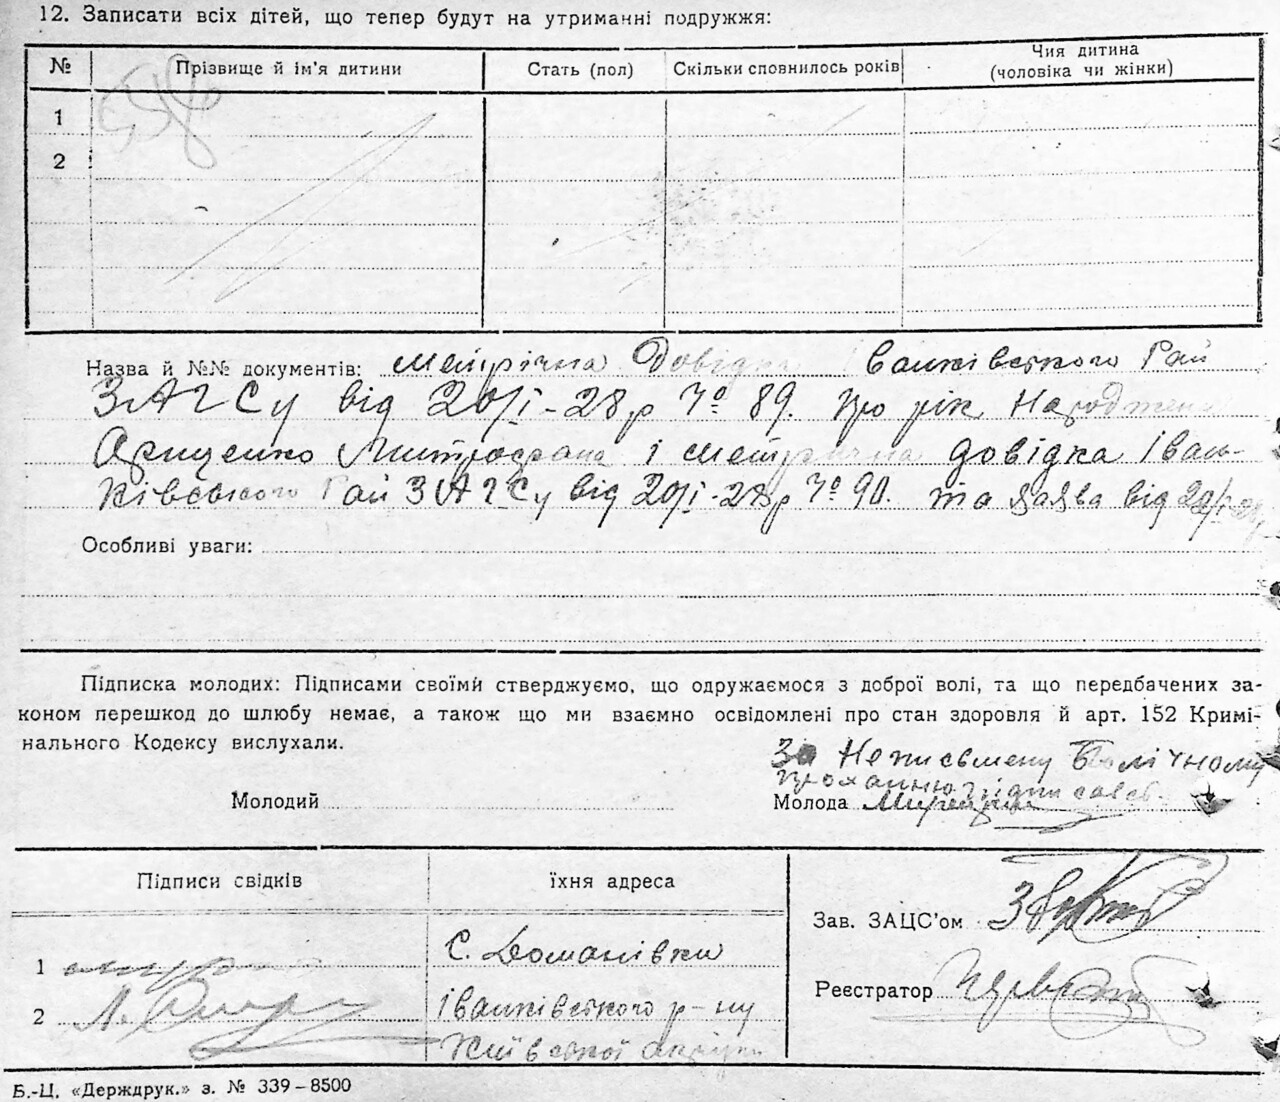 12. Записати всіх дітей, що тепер будут на утриманні подружжя:
№ Прізвище й ім'я дитини Стать (пол) Скільки сповнилось років Чия дитина
(чоловіка чи жінки)
1
2
Назва й №№ документів: метрічна Довідка Іванківського Рай
ЗАГСу від 20/I-28р № 89. про рік Народження
Митрофана і метрична довідка Іван-
ківського Рай ЗАГСу від 20/I-28р № 90. та заява від 20/I-28р
Особливі уваги:
Підписка молодих: Підписами своїми стверджуємо, що одружаємося з доброї волі, та що передбачених за-
коном перешкод до шлюбу немає, а також що ми взаємно освідомлені про стан здоровля й арт. 152 Кримі-
нального Кодексу вислухали.
За Неписьмену
Молодий Молода
Підписи свідків їхня адреса
Зав. ЗАЦС'ом
1 С. Доманівки
Реєстратор
2 Іванківського р-ну
Київської округи
Б.-Ц. «Держдрук.» з. № 339-8500